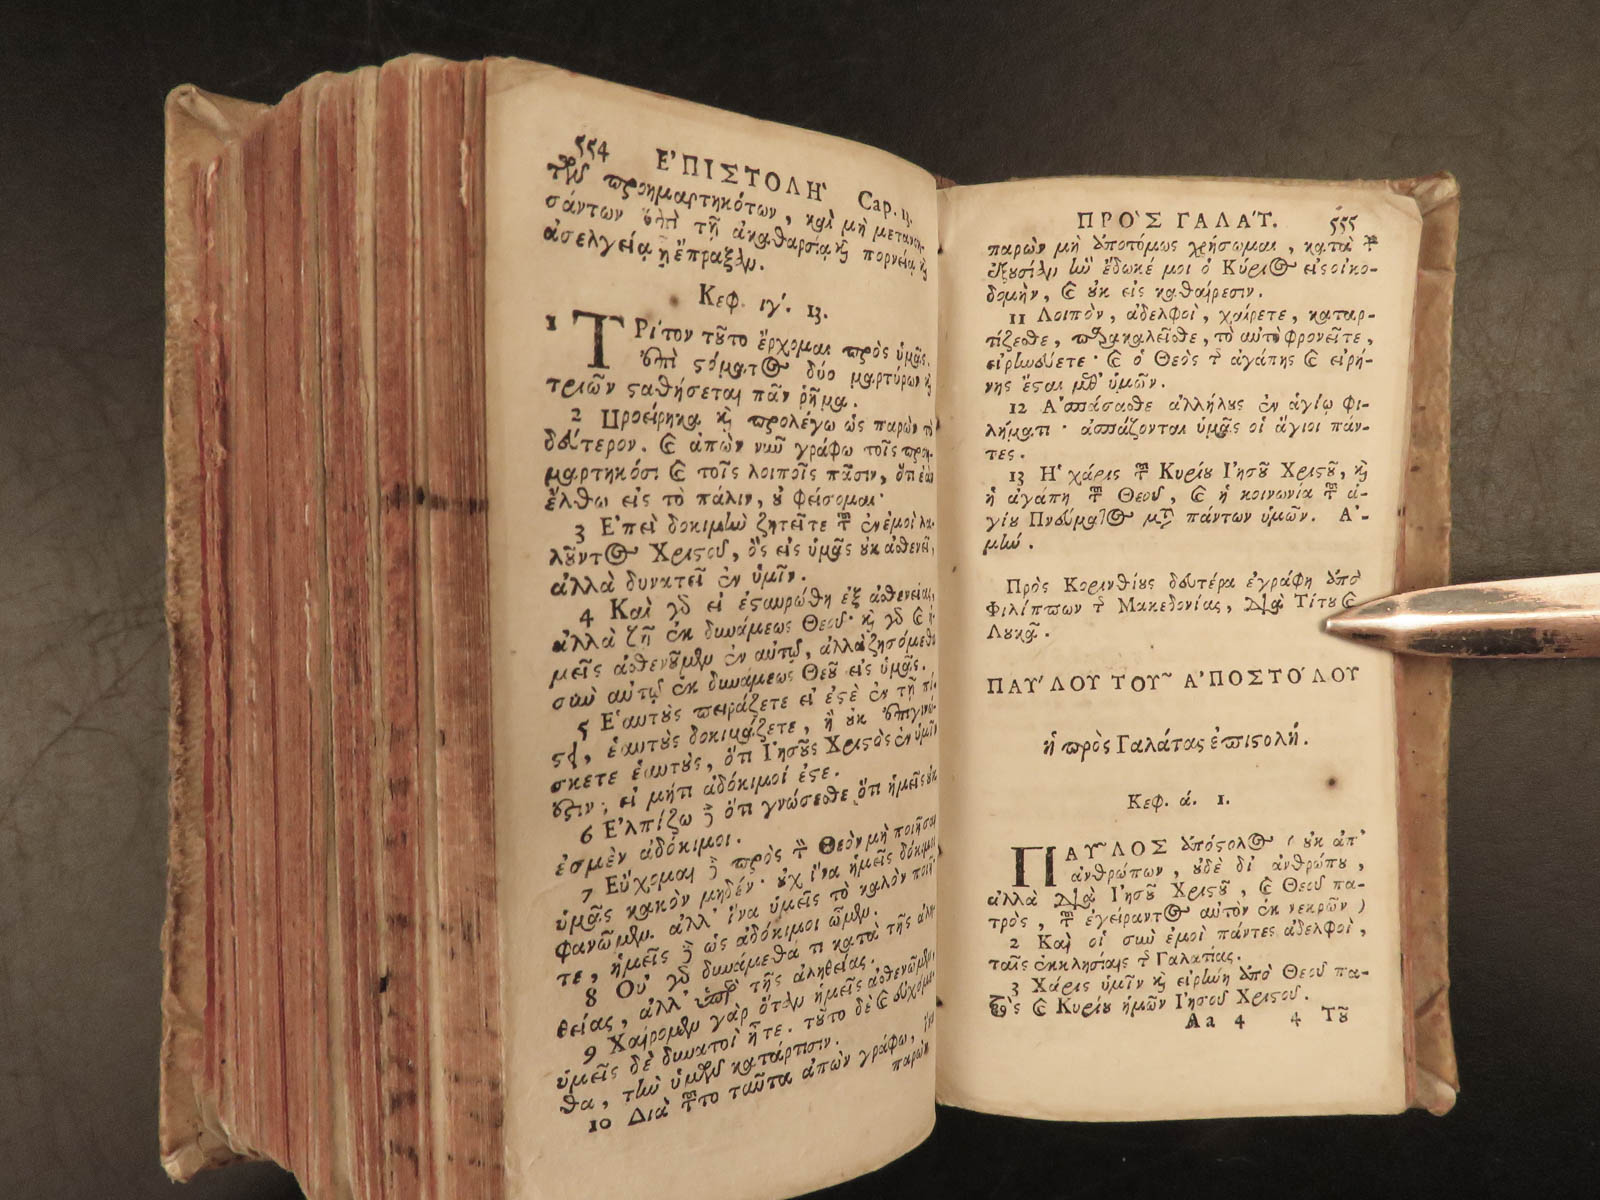 554 Ε᾿ΠΙΣΤΟΛΗ῾ Cap. 13.
τῶν προημαρτηκότων, καὶ μὴ μετανοη-
σάντων ἐπὶ τῇ ἀκαθαρσίᾳ καὶ πορνείᾳ καὶ
ἀσελγείᾳ ᾗ ἔπραξαν.
Κεφ. ιγ΄. 13.
1 ΤΡίτον τοῦτο ἔρχομαι πρὸς ὑμᾶς.
ἐπὶ στόματος δύο μαρτύρων καὶ
τριῶν σταθήσεται πᾶν ῥῆμα.
2 Προείρηκα καὶ προλέγω ὡς παρὼν τὸ
δεύτερον. καὶ ἀπὼν νῦν γράφω τοῖς προη-
μαρτηκόσι καὶ τοῖς λοιποῖς πᾶσιν, ὅτι ἐὰν
ἔλθω εἰς τὸ πάλιν, οὐ φείσομαι·
3 Ε᾿πεὶ δοκιμὴν ζητεῖτε τοῦ ἐν ἐμοὶ λα-
λοῦντος Χριστοῦ, ὃς εἰς ὑμᾶς οὐκ ἀσθενεῖ,
ἀλλὰ δυνατεῖ ἐν ὑμῖν.
4 Καὶ γὰρ εἰ ἐσταυρώθη ἐξ ἀσθενείας,
ἀλλὰ ζῇ ἐκ δυνάμεως Θεοῦ· καὶ γὰρ καὶ ἡ-
μεῖς ἀσθενοῦμεν ἐν αὐτῷ, ἀλλὰ ζησόμεθα
σὺν αὐτῷ ἐκ δυνάμεως Θεοῦ εἰς ὑμᾶς.
5 Ε῾αυτοὺς πειράζετε εἰ ἐστὲ ἐν τῇ πί-
στει, ἑαυτοὺς δοκιμάζετε, ἢ οὐκ ἐπιγινώ-
σκετε ἑαυτοὺς, ὅτι Ι᾿ησοῦς Χριστὸς ἐν ὑμῖν
ἐστιν; εἰ μήτι ἀδόκιμοί ἐστε.
6 Ε᾿λπίζω δὲ ὅτι γνώσεσθε ὅτι ἡμεῖς οὐκ
ἐσμὲν ἀδόκιμοι.
7 Εὔχομαι δὲ πρὸς τὸν Θεὸν μὴ ποιῆσαι
ὑμᾶς κακὸν μηδέν· οὐχ ἵνα ἡμεῖς δόκιμοι
φανῶμεν. ἀλλ᾿ ἵνα ὑμεῖς τὸ καλὸν ποιῆ-
τε, ἡμεῖς δὲ ὡς ἀδόκιμοι ὦμεν.
8 Οὐ γὰρ δυνάμεθά τι κατὰ τῆς ἀλη-
θείας, ἀλλ᾿ ὑπὲρ τῆς ἀληθείας.
9 Χαίρομεν γὰρ ὅταν ἡμεῖς ἀσθενῶμεν,
ὑμεῖς δὲ δυνατοὶ ἦτε. τοῦτο δὲ καὶ εὐχόμε-
θα, τὴν ὑμῶν κατάρτισιν.
10 Διὰ τοῦτο ταῦτα ἀπὼν γράφω, ἵνα
παρὼν
ΠΡΟ`Σ ΓΑΛΑ΄Τ. 555
παρὼν μὴ ἀποτόμως χρήσωμαι, κατὰ τὴν
ἐξουσίαν ἣν ἔδωκέ μοι ὁ Κύριος εἰς οἰκο-
δομὴν, καὶ οὐκ εἰς καθαίρεσιν.
11 Λοιπὸν, ἀδελφοὶ, χαίρετε, καταρ-
τίζεσθε, παρακαλεῖσθε, τὸ αὐτὸ φρονεῖτε,
εἰρηνεύετε· καὶ ὁ Θεὸς τῆς ἀγάπης καὶ εἰρή-
νης ἔσται μεθ᾿ ὑμῶν.
12 Α᾿σπάσασθε ἀλλήλους ἐν ἁγίῳ φι-
λήματι· ἀσπάζονται ὑμᾶς οἱ ἅγιοι πάν-
τες.
13 Η῾ χάρις τοῦ Κυρίου Ι᾿ησοῦ Χριστοῦ, καὶ
ἡ ἀγάπη τοῦ Θεοῦ, καὶ ἡ κοινωνία τοῦ ἁ-
γίου Πνεύματος μετὰ πάντων ὑμῶν. Α᾿-
μήν.
Πρὸς Κορινθίους δευτέρα ἐγράφη ἀπὸ
Φιλίππων τῆς Μακεδονίας, διὰ Τίτου καὶ
Λουκᾶ.
ΠΑΥ΄ΛΟΥ ΤΟΥ῀ Α᾿ΠΟΣΤΟ΄ΛΟΥ
ἡ πρὸς Γαλάτας ἐπιστολή.
Κεφ. ά. 1.
ΠΑΥ῀ΛΟΣ ἀπόστολος (οὐκ ἀπ᾿
ἀνθρώπων, οὐδὲ δι᾿ ἀνθρώπου,
ἀλλὰ διὰ Ι᾿ησοῦ Χριστοῦ, καὶ Θεοῦ πα-
τρὸς, τοῦ ἐγείραντος αὐτὸν ἐκ νεκρῶν)
2 Καὶ οἱ σὺν ἐμοὶ πάντες ἀδελφοὶ,
ταῖς ἐκκλησίαις τῆς Γαλατίας.
3 Χάρις ὑμῖν καὶ εἰρήνη ἀπὸ Θεοῦ πα-
τρὸς καὶ Κυρίου ἡμῶν Ι᾿ησοῦ Χριστοῦ.
Aa 4 4 Τοῦ